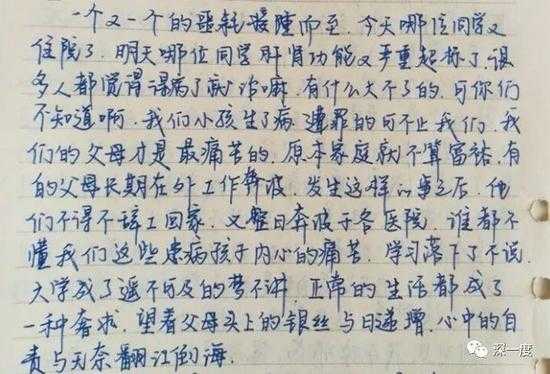 一个又一个的噩耗接踵而至，今天哪位同学又
住院了，明天哪位同学肝肾功能又严重超标了，很
多人都觉得得病了就咋嘛，有什么大不了的，可你们
不知道啊，我们小孩生了病，遭罪的可不止我们，我
们的父母才是最痛苦的，原本家庭就不算富裕，有
的父母长期在外工作奔波，发生这样的事之后，他
们不得不辞工回家，又整日奔波于各医院，谁都不
懂我们这些患病孩子内心的痛苦，学习落下了不说，
大学成了遥不可及的梦不讲，正常的生活都成了
一种奢求，望着父母头上的银丝与日递增，心中的自
责与无奈翻江倒海．
深一度